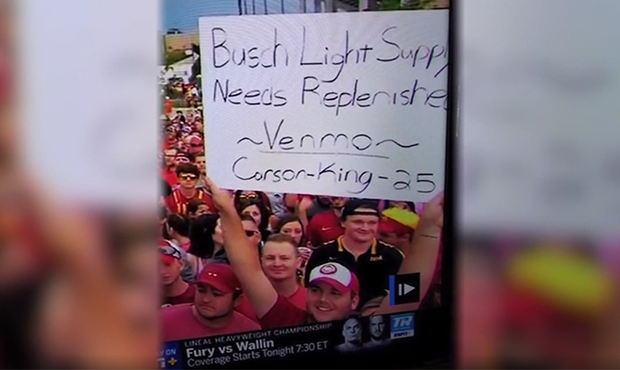 Busch Light Supply
Needs Replenished
~Venmo~
Carson-King-25
LINEAL HEAVYWEIGHT CHAMPIONSHIP
Fury vs Wallin
Coverage Starts Tonight 7:30 ET
TR
ESPN
ON